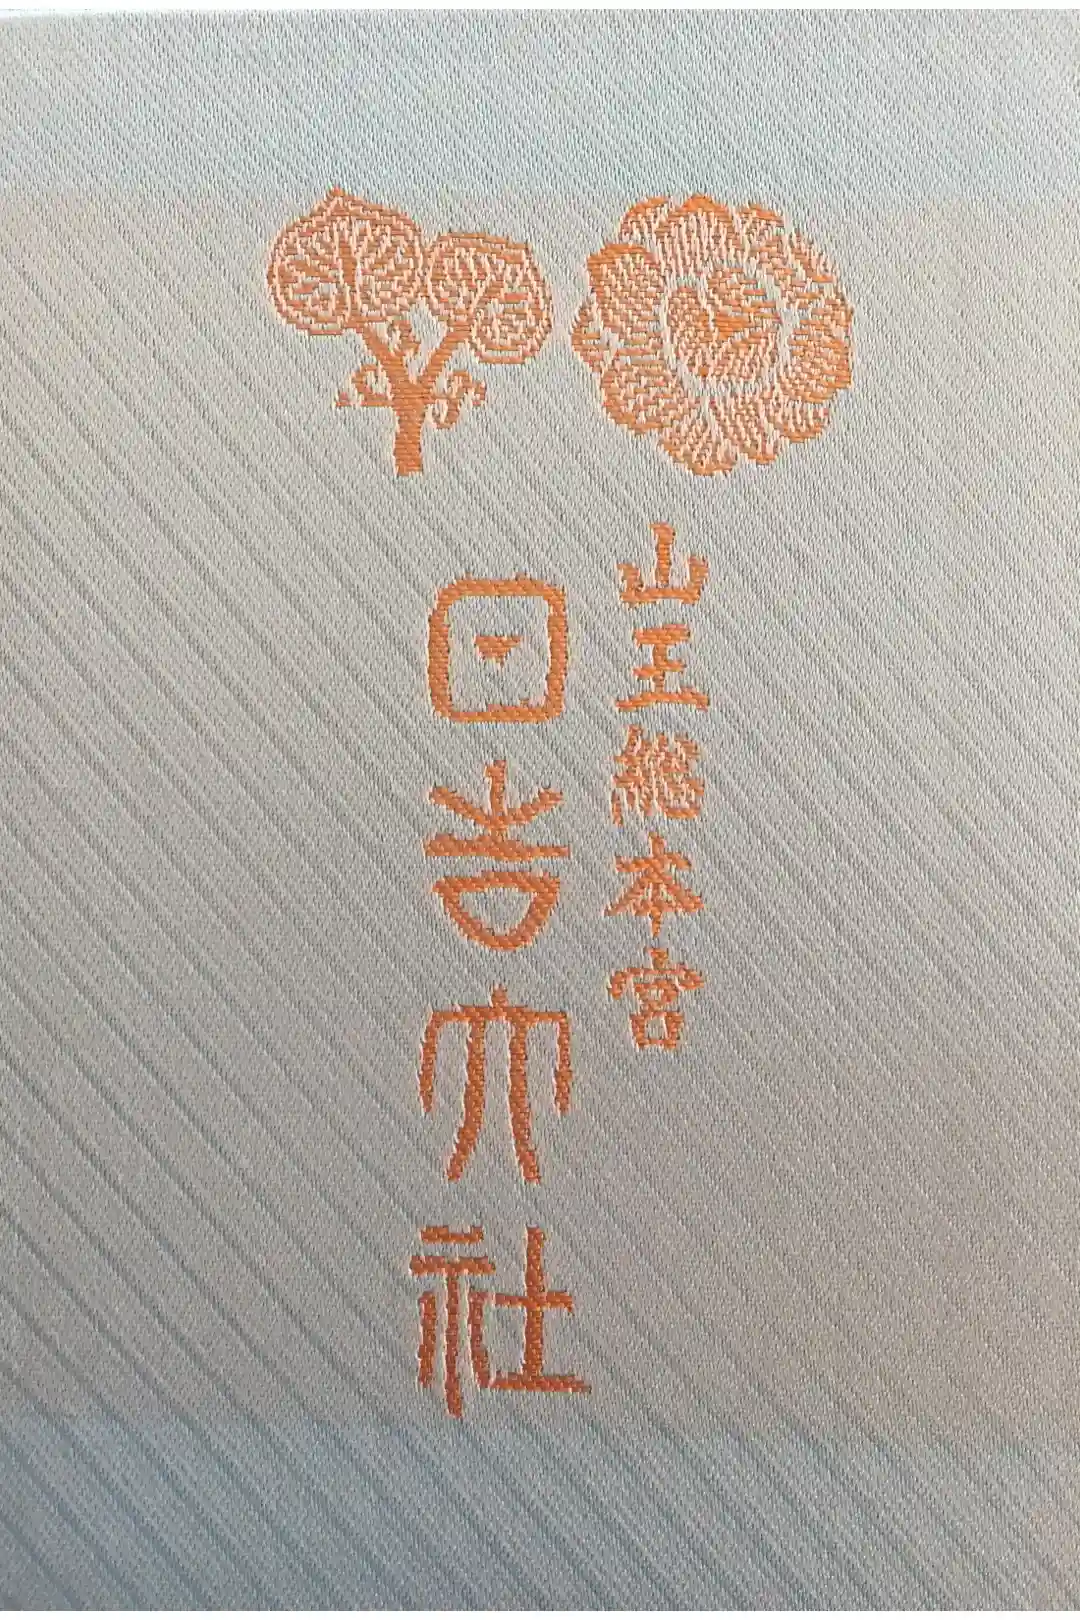 山王總本宮
日吉大社